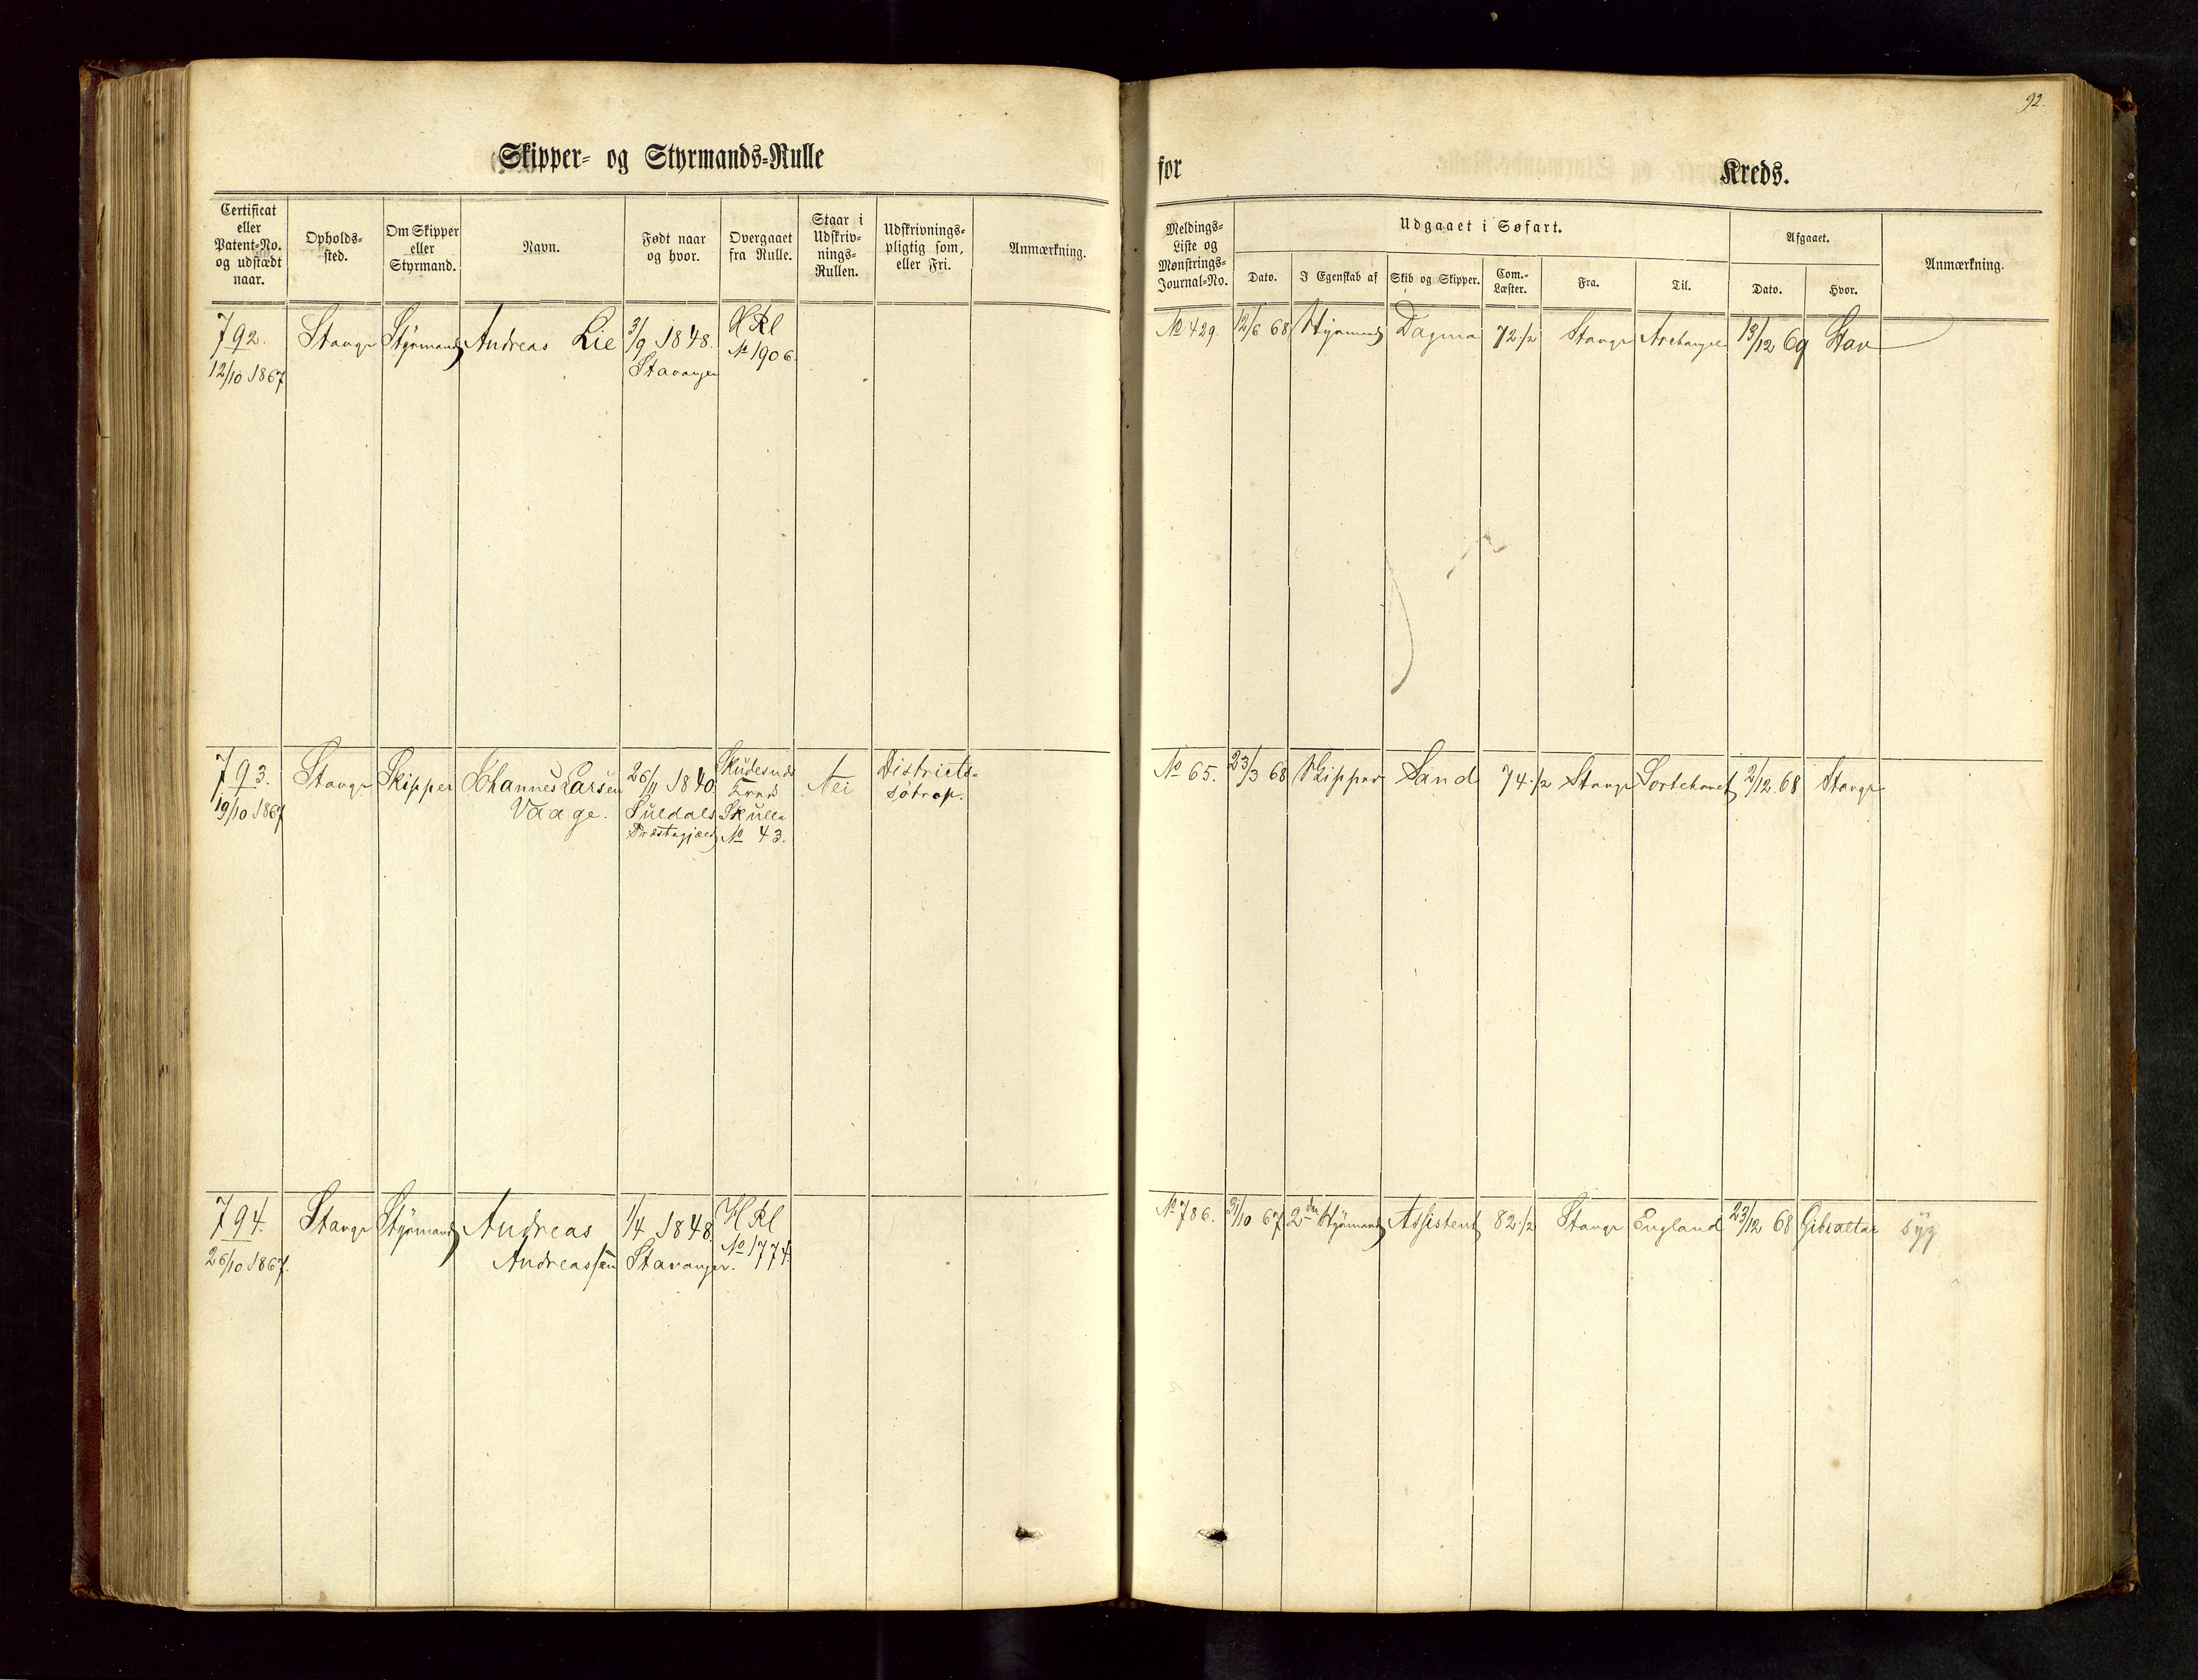 92.
Skipper- og Styrmands-Rulle
for Kreds.
Certificat eller Patent-No. og udstædt naar.
Opholds-sted.
Om Skipper eller Styrmand.
Navn.
Født naar og hvor.
Overgaaet fra Rulle.
Staar i Udskriv-nings-Rullen.
Udskrivnings-pligtig som, eller Fri.
Anmærkning.
Meldings-Liste og Mønstrings-Journal-No.
Udgaaet i Søfart.
Dato.
I Egenskab af
Skib og Skipper.
Com.-Læster.
Fra.
Til.
Afgaaet.
Dato.
Hvor.
Anmærkning.
792. Stavgr Styrmand Andreas Lie 3/9 1848. H Rl
12/10 1867 Stavanger No 1906
No 429. 12/6 68 Styrmand Dagma 72 1/2 Stavgr Archangel 13/12 69 Stav
793. Stavgr Skipper Johannes Larsen 26/11 1840 Skudesnæs Nei Districts-
19/10 1867 Vaage. Suldals Skulle søtrop.
Præstegjæld No 43.
No 65. 23/3 68 Skipper Sand 74 1/2 Stavgr Sortehavet 2/12 68 Stavgr
794. Stavgr Styrmand Andreas 1/4 1848. H Rl
26/10 1867. Andreassen Stavanger. No 1774.
No 786. 31/10 67 2den Styrmand Assistent 82 1/2 Stavgr England 23/12 68 Gibraltar syg